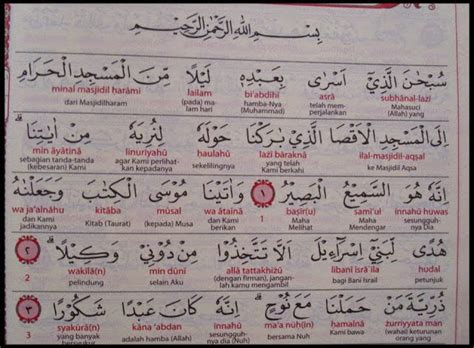 بِسْمِ اللّٰهِ الرَّحْمٰنِ الرَّحِيْمِ
سُبْحٰنَ الَّذِيْٓ اَسْرٰى بِعَبْدِهٖ لَيْلًا مِّنَ الْمَسْجِدِ الْحَرَامِ
subḥānal-lażī asrā bi'abdihī lailam minal masjidil ḥarāmi
Mahasuci (Allah) yang telah memperjalankan hamba-Nya (Muhammad) (pada) malam hari dari Masjidilharam
اِلَى الْمَسْجِدِ الْاَقْصَا الَّذِيْ بٰرَكْنَا حَوْلَهٗ لِنُرِيَهٗ مِنْ اٰيٰتِنَاۗ
ilal-masjidil-aqṣal lażī bāraknā ḥaulahū linuriyahū min āyātinā
ke Masjidil Aqsa yang telah Kami berkahi sekelilingnya agar Kami perlihatkan kepadanya sebagian tanda-tanda (kebesaran) Kami
اِنَّهٗ هُوَ السَّمِيْعُ الْبَصِيْرُ ١ وَاٰتَيْنَا مُوْسَى الْكِتٰبَ وَجَعَلْنٰهُ
innahū huwas sami'ul baṣīr(u) 1 wa ātainā mūsal kitāba wa ja'alnāhu
sesungguhnya Dia Maha Mendengar Maha Melihat dan Kami berikan (kepada) Musa Kitab (Taurat) dan Kami jadikannya
هُدًى لِّبَنِيْٓ اِسْرَاۤءِيْلَ اَلَّا تَتَّخِذُوْا مِنْ دُوْنِيْ وَكِيْلًاۗ ٢
hudal libanī isrā'īla allā tattakhiżū min dūnī wakīlā(n) 2
petunjuk bagi Bani Israil (dengan firman), janganlah kamu mengambil selain Aku pelindung
ذُرِّيَّةَ مَنْ حَمَلْنَا مَعَ نُوْحٍۗ اِنَّهٗ كَانَ عَبْدًا شَكُوْرًا ٣
żurriyyata man ḥamalnā ma'a nūḥ(in) innahū kāna 'abdan syakūrā(n) 3
(wahai) keturunan orang yang Kami bawa bersama Nuh sesungguhnya dia adalah hamba (Allah) yang banyak bersyukur